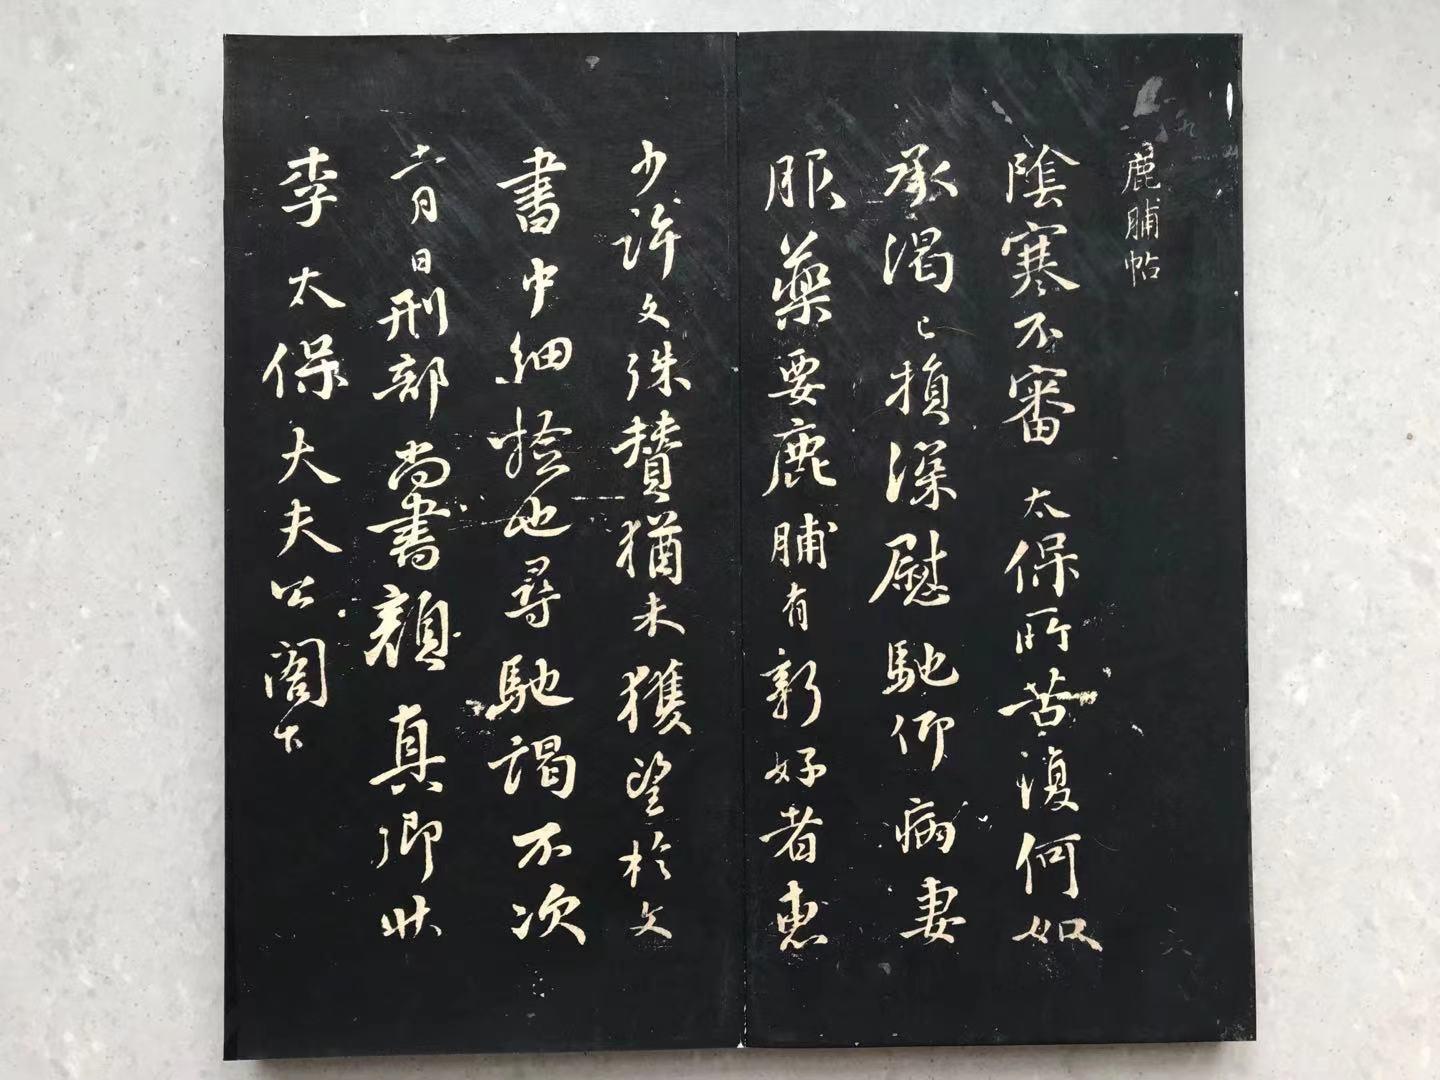 鹿脯帖
陰寒不審 太保所苦復何如
承渴已損深慰馳仰病妻
服藥要鹿脯有新好者惠
少許文殊贊猶未獲望於文
書中細撿也尋馳謁不次
六月日刑部尚書顏真卿狀
李太保大夫公閣下